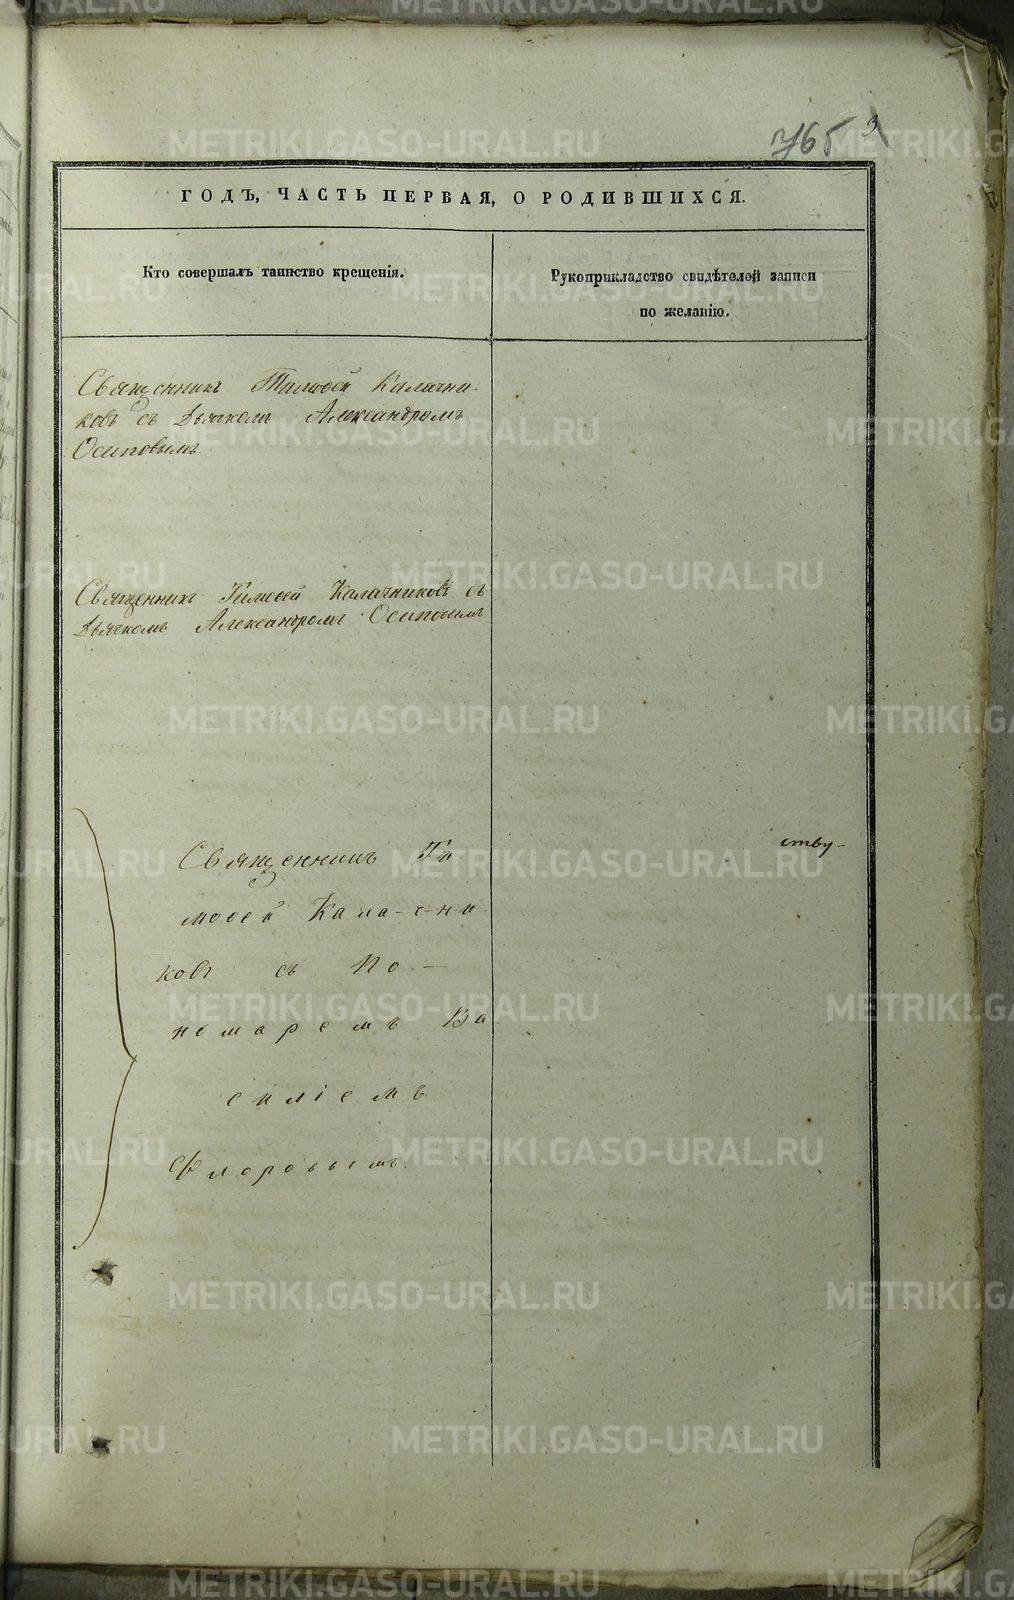 765 3
ГОДЪ, ЧАСТЬ ПЕРВАЯ, О РОДИВШИХСЯ.
Кто совершалъ таинство крещенія.
Рукоприкладство свидѣтелей записи
по желанію.
Священникъ Тимоѳей Калачни-
ковъ съ Дьячкомъ Александромъ
Осиповымъ
Священникъ Тимоѳей Калачниковъ съ
Дьячкомъ Александромъ Осиповымъ
Священникъ Ти
моѳей Калачни
ковъ съ По-
номаремъ Ва
силіемъ
Флоровымъ.
ству-
METRIKI.GASO-URAL.RU